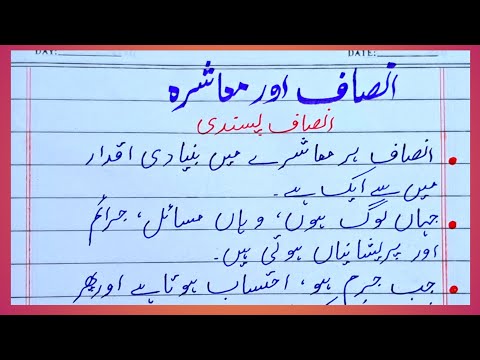 DAY: DATE:
انصاف اور معاشرہ
انصاف پسندی
انصاف ہر معاشرے میں بنیادی اقدار
میں سے ایک ہے۔
جہاں لوگ ہوں، وہاں مسائل، جرائم
اور پریشانیاں ہوتی ہیں۔
جب جرم ہو، احتساب ہوتا ہے اور پھر